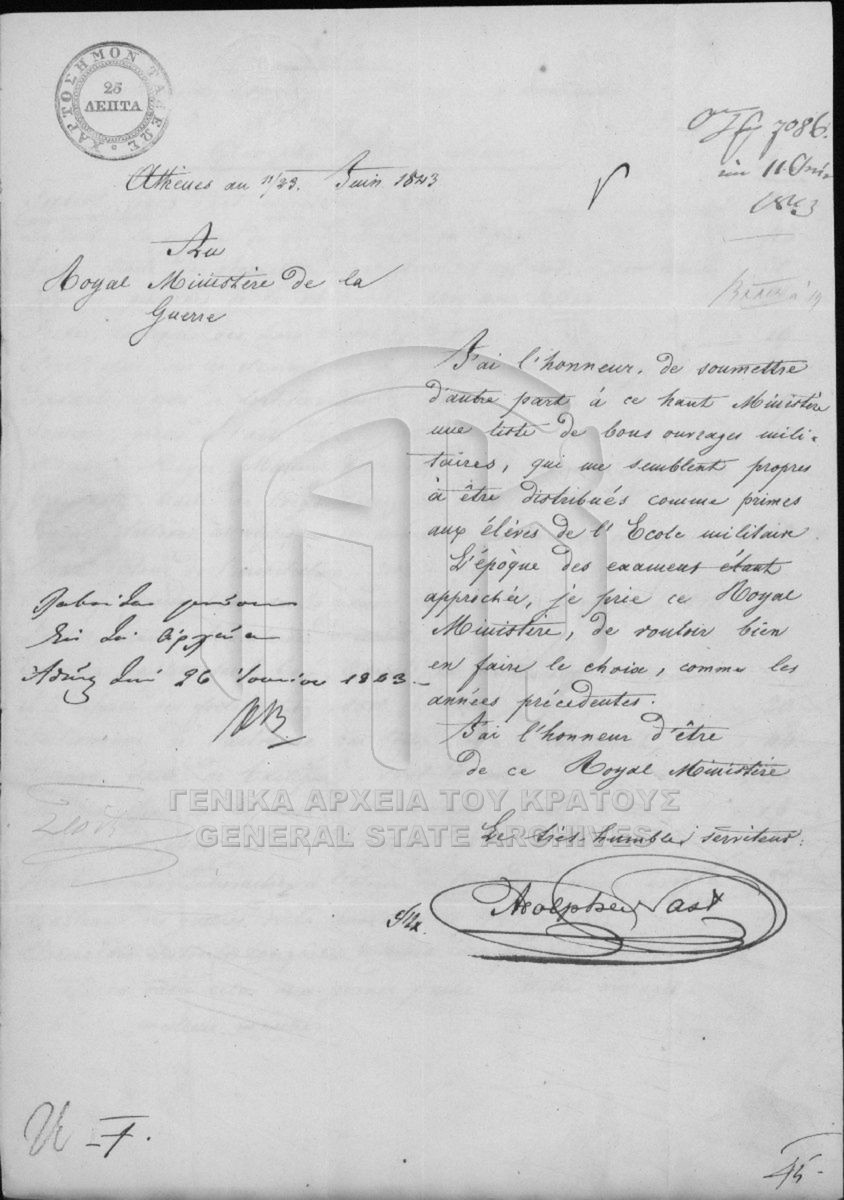 ΧΑΡΤΟΣΗΜΟΝ ΤΑΞΕΩΣ
25
ΛΕΠΤΑ
7086.
11
1843
Athènes au 11/23. Juin 1843
Au
Royal Ministère de la
Guerre
J'ai l'honneur, de soumettre
d'autre part à ce haut Ministère
une liste de bons ouvrages mili-
taires, qui me semblent propres
à être distribués comme primes
aux élèves de l'Ecole militaire.
L'époque des examens étant
approchée, je prie ce Royal
Ministère, de vouloir bien
en faire le choix, comme les
années précédentes.
J'ai l'honneur d'être
de ce Royal Ministère
Le très humble serviteur.
Adolphe Nast
26 Ιουνίου 1843
ΓΕΝΙΚΑ ΑΡΧΕΙΑ ΤΟΥ ΚΡΑΤΟΥΣ
GENERAL STATE ARCHIVES